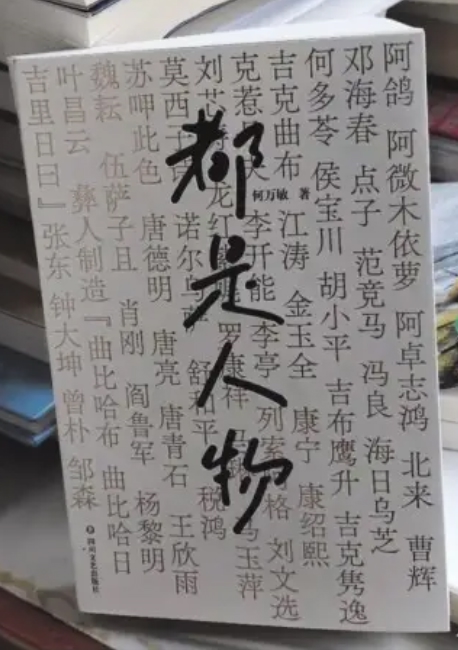 都是人物
何万敏 著
阿鸽 阿微木依萝 阿卓志鸿 北来 曹辉
邓海春 点子 范竞马 冯良 海日乌芝
何多苓 侯宝川 胡小平 吉布鹰升 吉克隽逸
吉克曲布 江涛 金玉全 康宁 康绍熙
克惹 李开能 李亭 列索 格 刘文选
刘芯 龙红 罗康祥 马玉萍
莫西 诺尔乌萨 舒和平 税鸿
苏呷此色 唐德明 唐亮 唐青石 王欣雨
魏耘 伍萨子且 肖刚 阎鲁军 杨黎明
叶昌云 彝人制造『曲比哈布 曲比哈日
吉里日曰』 张东 钟大坤 曾朴 邹森
四川文艺出版社